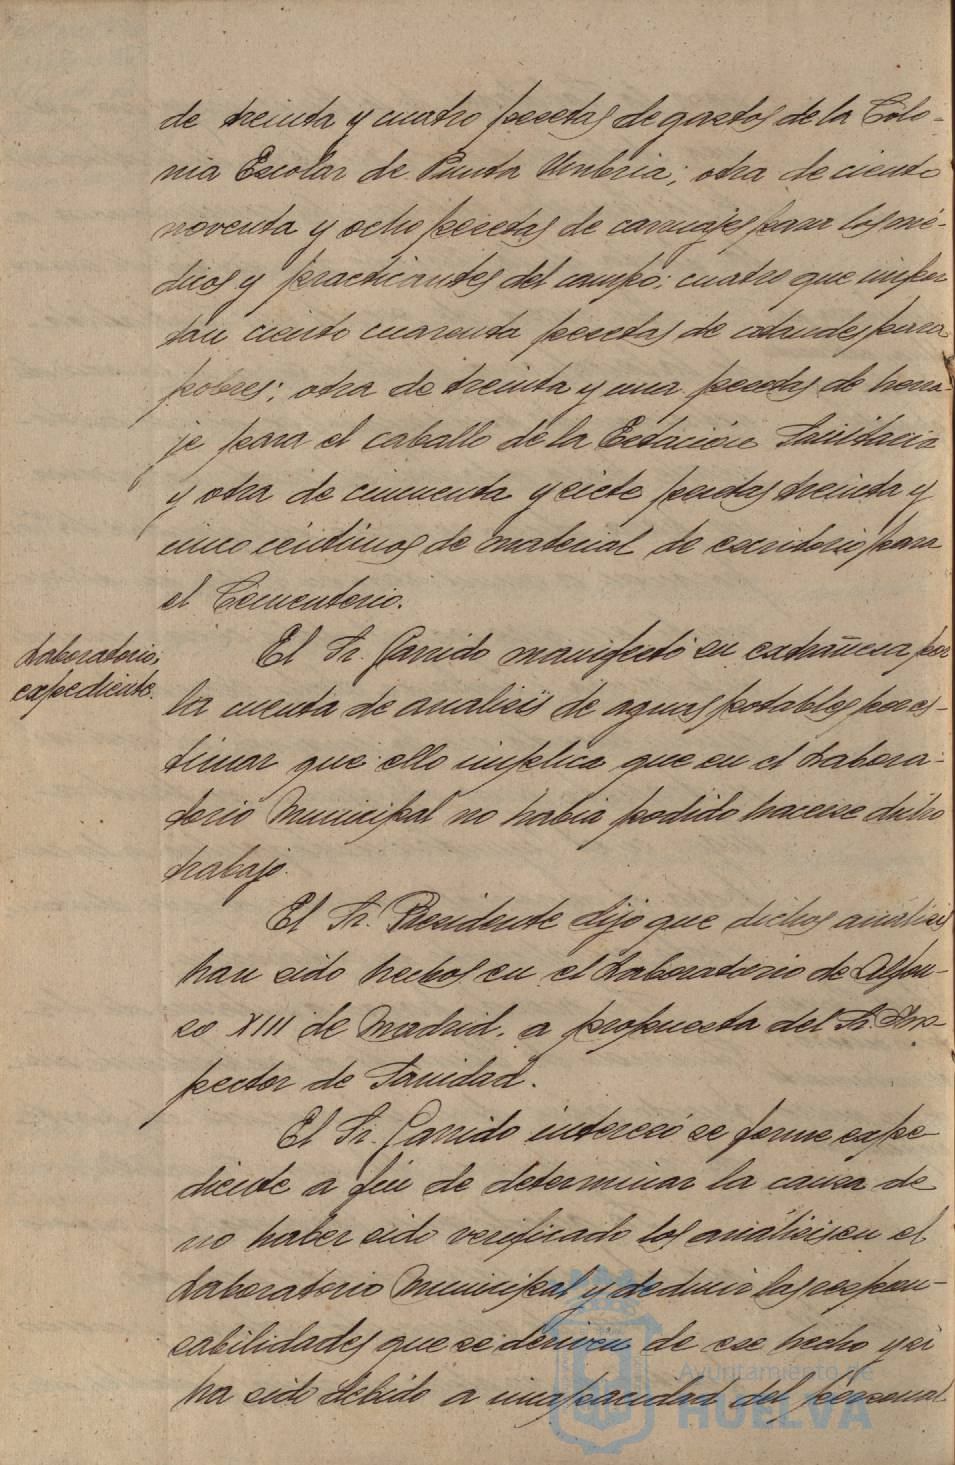 de treinta y cuatro pesetas de gastos de la Colo-
nia Escolar de Punta Umbria; otra de ciento
noventa y ocho pesetas de carruajes para los mé-
dicos y practicantes del campo; cuatro que impor
tan ciento cuarenta pesetas de ataudes para
pobres; otra de treinta y una pesetas de herra-
je para el caballo de la Estación Sanitaria
y otra de cincuenta y siete pesetas treinta y
cinco céntimos de material de escritorio para
el Cementerio.
Laboratorio;
expediente.
El Sr. Garrido manifestó su extrañesa por
la cuenta de analisis de aguas potables por es-
timar que ello implica que en el Labora-
torio Municipal no habia podido hacerse dicho
trabajo.
El Sr. Presidente dijo que dichos análisis
han sido hechos en el Laboratorio de Alfon-
so XIII de Madrid, a propuesta del Sr. Ins-
pector de Sanidad.
El Sr. Garrido interesó se forme expe-
diente a fin de determinar la causa de
no haber sido verificado los análisis en el
Laboratorio Municipal y deducir las respon-
sabilidades que se deriven de ese hecho y si
ha sido debido a incapacidad del personal
Ayuntamiento de
HUELVA